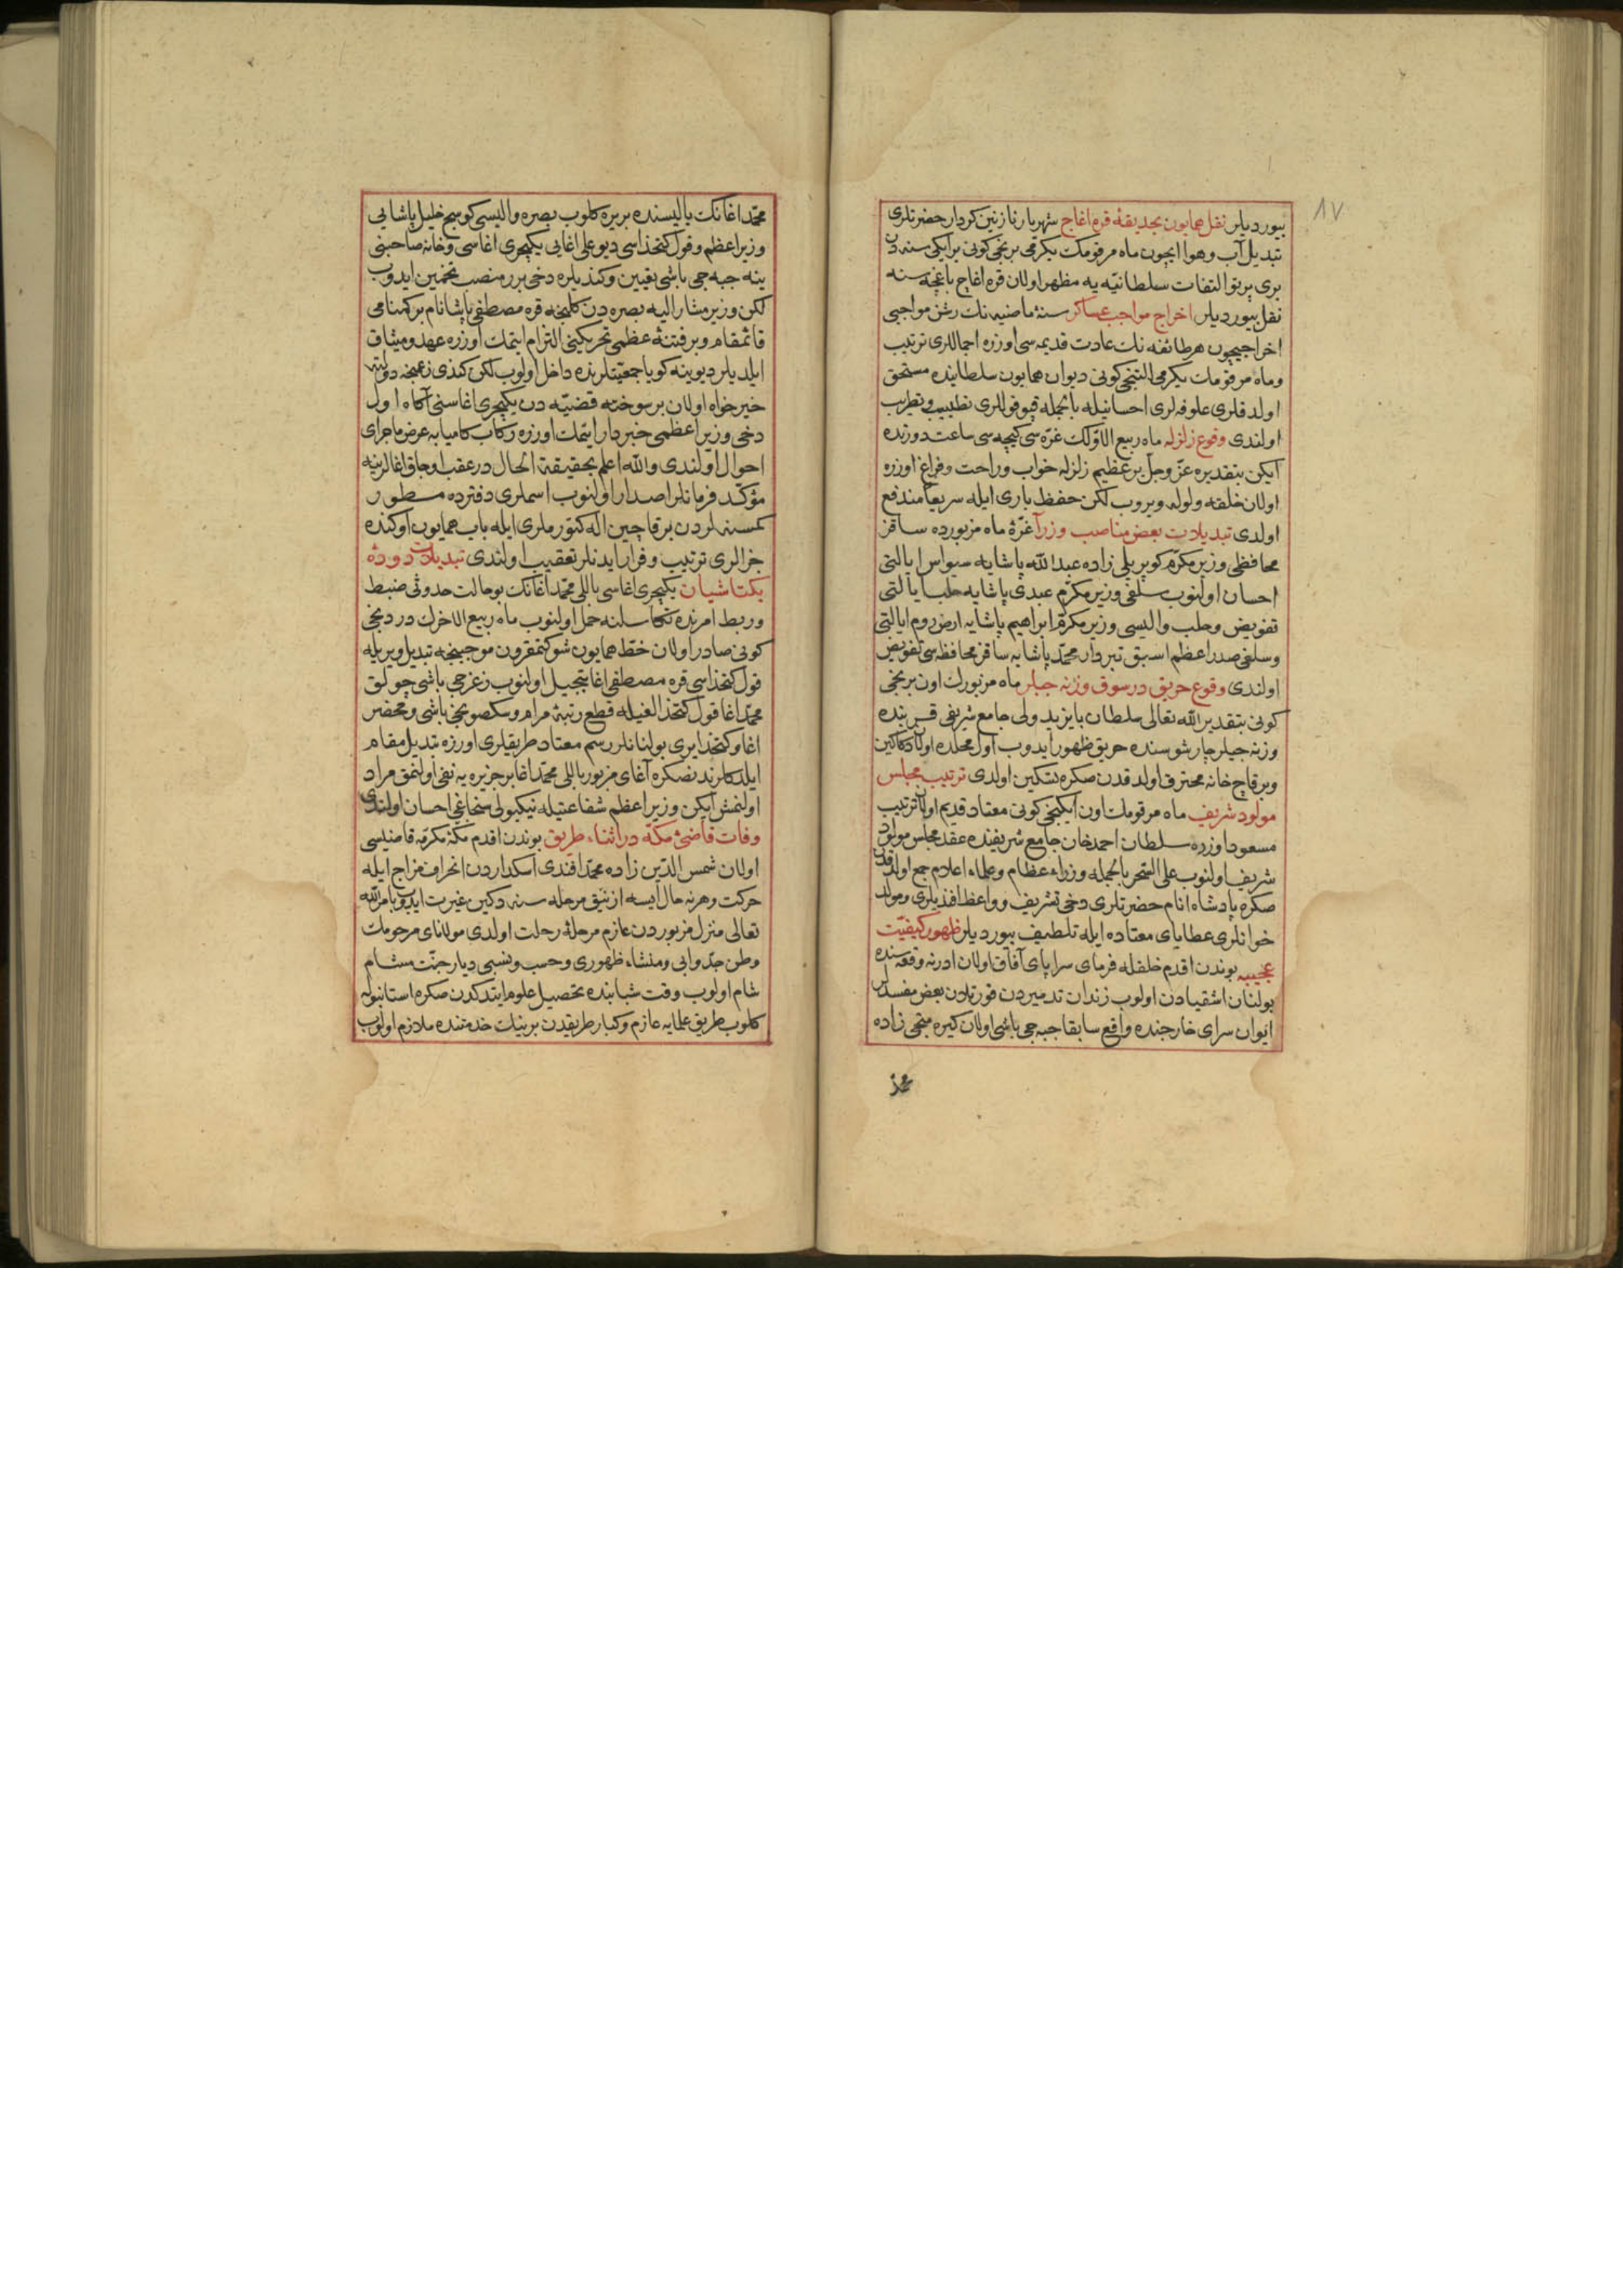 ٨٧
بیوردیلر نقل همایون بحدیقهٔ قره اغاج شهریار نازنین کردار حضرتلری
تبدیل آب وهوا ایچون ماه مرقومك یکرمی برنجی کونی برایکی سنه دن
بری پرتو التفات سلطانیه یه مظهر اولان قره اغاج باغچه سنه
نقل بیوردیلر اخراج مواجب عساکر سنهٔ ماضیه نك رشن مواجبی
اخراجیچون هرطائفه نك عادت قدیمه سی اوزره اجماللری ترتیب
وماه مرقومك یکرمی التنجی کونی دیوان همایون سلطانیده مستحق
اولدقلری علوفه لری احسانیله بالجمله قپوقوللری تطییب وتطریب
اولندی وقوع زلزله ماه ربیع الاولك غره سی کیجه سی ساعت دورتده
ایکن بتقدیره عز وجل بر عظیم زلزله خواب وراحت وفراغ اوزره
اولان خلقه ولوله ویروب لکن حفظ باری ایله سریعا مندفع
اولدی تبدیلات بعض مناصب وزرا غرهٔ ماه مزبورده ساقز
محافظی وزیر مکرم کوپریلی زاده عبد الله پاشایه سیواس ایالتی
احسان اولنوب سلفی وزیر مکرم عبدی پاشایه حلب ایالتی
تفویض وحلب والیسی وزیر مکرم ابراهیم پاشایه ارضروم ایالتی
وسلفی صدر اعظم اسبق تبردار محمد پاشایه ساقز محافظه سی تفویض
اولندی وقوع حریق در سوق وزنه جیلر ماه مزبورك اون برنجی
کونی بتقدیر الله تعالی سلطان بایزید ولی جامع شریفی قربنده
وزنه جیلر چارشوسنده حریق ظهور ایدوب اول محلده اولان دکاکین
وبرقاچ خانه محترق اولدقدن صکره تسکین اولدی ترتیب مجلس
مولود شریف ماه مرقومك اون ایکنجی کونی معتاد قدیم اولان ترتیب
مسعود اوزره سلطان احمد خان جامع شریفنده عقد مجلس مولود
شریف اولنوب علی السحر بالجمله وزراء عظام وعلماء اعلام جمع اولدقدن
صکره پادشاه انام حضرتلری دخی تشریف وواعظ افندیلری ومولد
خوانلری عطایای معتاده ایله تلطیف بیوردیلر ظهور کیفیت
عجیبه بوندن اقدم خلقله فرمای سراپای آفاق اولان ادرنه وقعه سنده
بولنان اشقیادن اولوب زندان تدمیردن قورتلان بعض مفسدلر
ایوان سرای خارجنده واقع سابقا جبه جی باشی اولان کیره متجی زاده
محمد
محمد اغانك یالیسنده بریره کلوب بصره والیسی کوسج خلیل پاشایی
وزیر اعظم وقول کتخداسی دیو علی اغایی یکیچری اغاسی وخانه صاحبنی
ینه جبه جی باشی تعیین وکندیلره دخی برر منصب تخمین ایدوب
لکن وزیر مشار الیه بصره دن کلنجه قره مصطفی پاشا نام بر کمنامی
قائمقام وبر فتنهٔ عظمی تحریکنی التزام ایتمك اوزره عهد ومیثاق
ایلدیلر دیوینه کویا جمعیتلرنده داخل اولوب لکن کندی زعمنجه دولته
خیرخواه اولان بر سوخته قضیه دن یکیچری اغاسنی آکاه اول
دخی وزیر اعظمی خبردار ایتمك اوزره رکاب کامیابه عرض ماجرای
احوال اولندی والله اعلم بحقیقة الحال در عقب اوجاق اغالرینه
مؤکد فرمانلر اصدار اولنوب اسملری دفترده مسطور
کمسنه لردن برقاچین اله کتورملری ایله باب همایون اوکنده
جزالری ترتیب وفرار ایدنلر تعقیب اولندی تبدیلات دودهٔ
بکتاشیان یکیچری اغاسی باللی محمد اغانك بو حالت حدوثی ضبط
وربط امرنده تکاسلنه حمل اولنوب ماه ربیع الاخرك دردنجی
کونی صادر اولان خط همایون شوکتمقرون موجبنجه تبدیل ویریله
قول کتخداسی قره مصطفی اغا تبجیل اولنوب زغرجی باشی چولق
محمد اغا قول کتخدالغیله قطع رتبهٔ مرام وسکصونجی باشی ومحضر
اغا وکتخدایری بولنانلر رسم معتاد طریقلری اوزره تبدیل مقام
ایلدکلرندنصکره آغای مزبور باللی محمد اغا بر جزیره یه نفی اولنمق مراد
اولنمش ایکن وزیر اعظم شفاعتیله نیکبولی سنجاغی احسان اولندی
وفات قاضیٔ مکه در اثناء طریق بوندن اقدم مکهٔ مکرمه قاضیسی
اولان شمس الدین زاده محمد افندی اسکداردن انحراف مزاج ایله
حرکت وهرنه حال ایسه ازنیق مرحله سنه دکین غیرت ایدوب بامر الله
تعالی منزل مزبوردن عازم مرحلهٔ رحلت اولدی مولانای مرحومك
وطن جد وابی ومنشاء ظهوری وحسب ونسبی دیار جنت مشام
شام اولوب وقت شبابنده تحصیل علوم ایتدکدن صکره استانبوله
کلوب طریق علمایه عازم وکبار طریقدن برینك خدمتنده ملازم اولوب